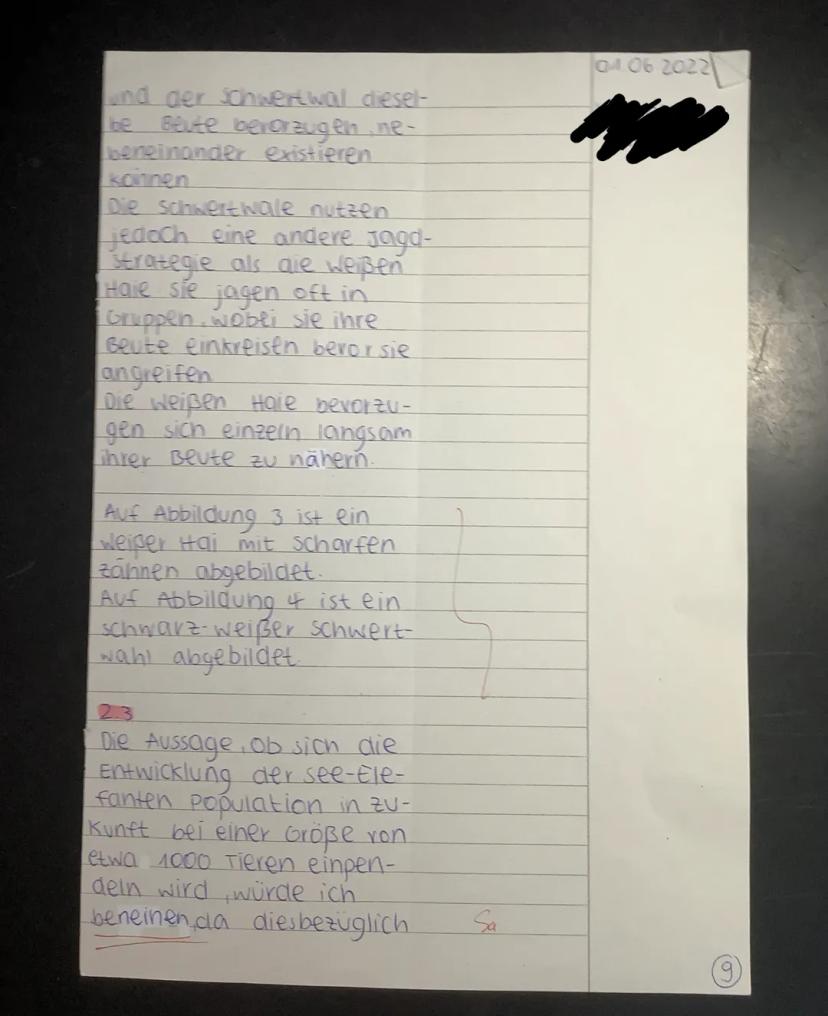 01.06.2022
und der Schwertwal diesel-
be Beute bevorzugen, ne-
beneinander existieren
können
Die Schwertwale nutzen
jedoch eine andere Jagd-
strategie als die weißen
Haie sie jagen oft in
Gruppen, wobei sie ihre
Beute einkreisen bevor sie
angreifen
Die weißen Haie bevorzu-
gen sich einzeln langsam
ihrer Beute zu nähern.
Auf Abbildung 3 ist ein
weißer Hai mit scharfen
zähnen abgebildet.
Auf Abbildung 4 ist ein
schwarz-weißer schwert-
wahl abgebildet.
2.3
Die Aussage, ob sich die
Entwicklung der See-Ele-
fanten Population in zu-
kunft bei einer Größe von
etwa 1000 Tieren einpen-
deln wird, würde ich
beneinen, da diesbezüglich Sa
9